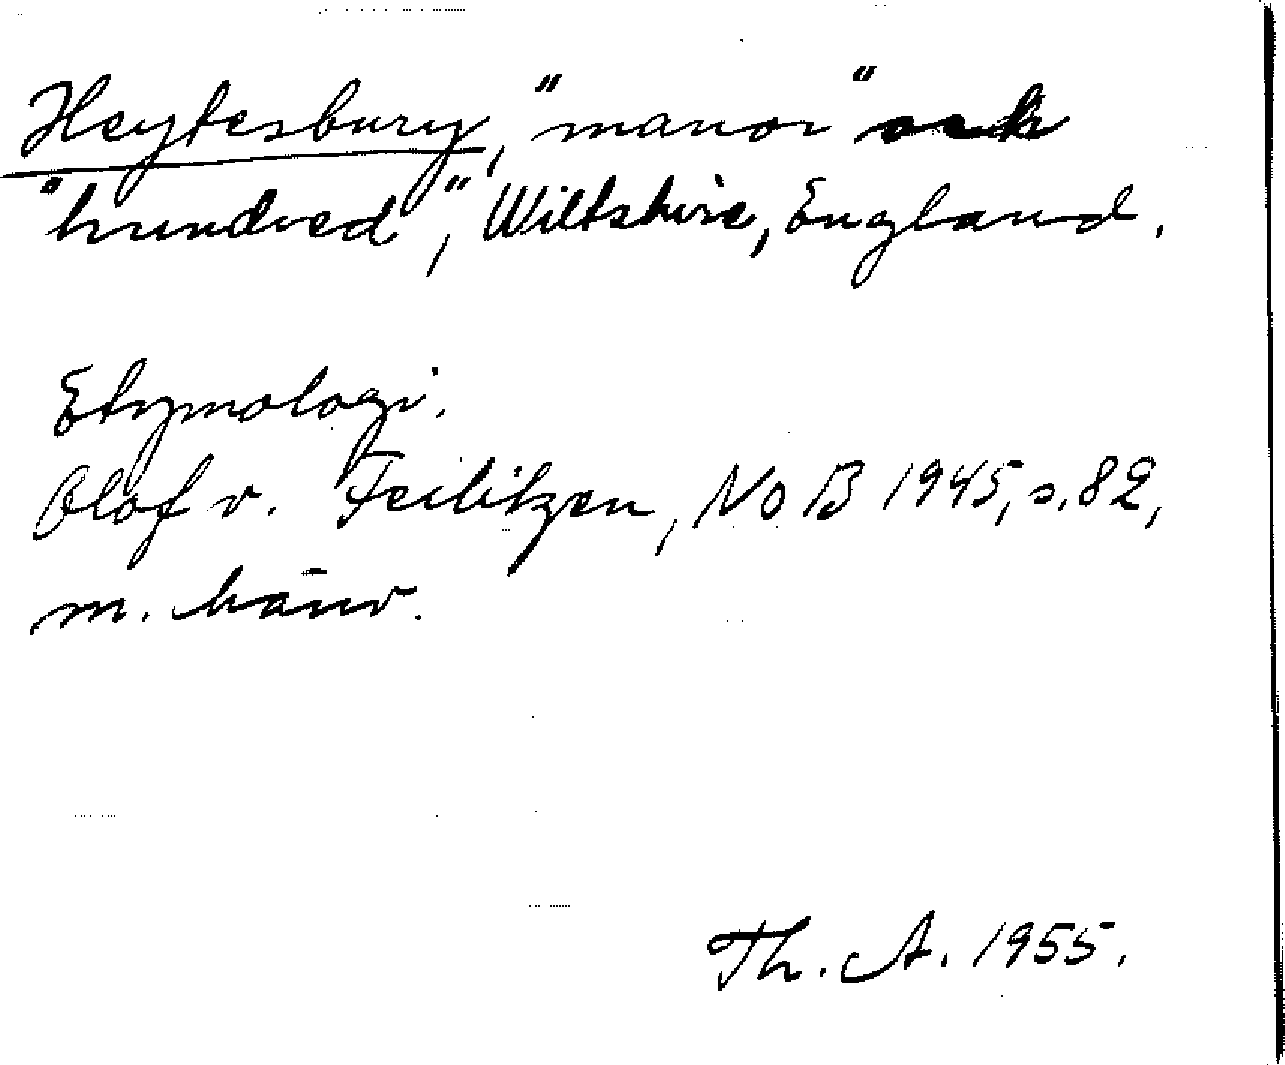 Heytesbury, "manor" och
"hundred", Wiltshire, England.
Etymologi.
Olof v. Feilitzen, NoB 1945, s. 82,
m. hänv.
Th. A. 1955.